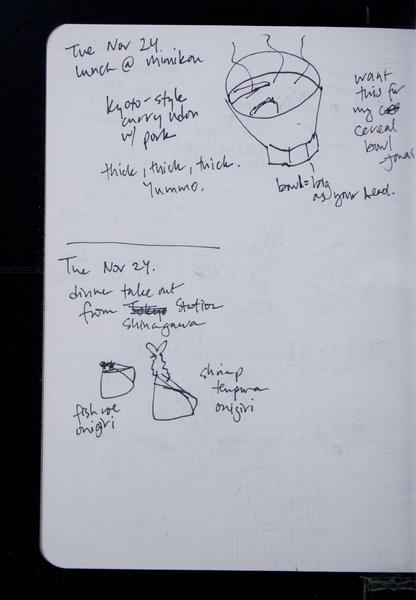 Tue Nov 24.
lunch @ mimikou
Kyoto-style
curry udon
w/ pork
thick, thick, thick.
Yummo.
want
this for
my
cereal
bowl
bowl = big
as your head.
Tue Nov 24.
dinner take out
from Station
Shinagawa
fish roe
onigiri
shrimp
tempura
onigiri